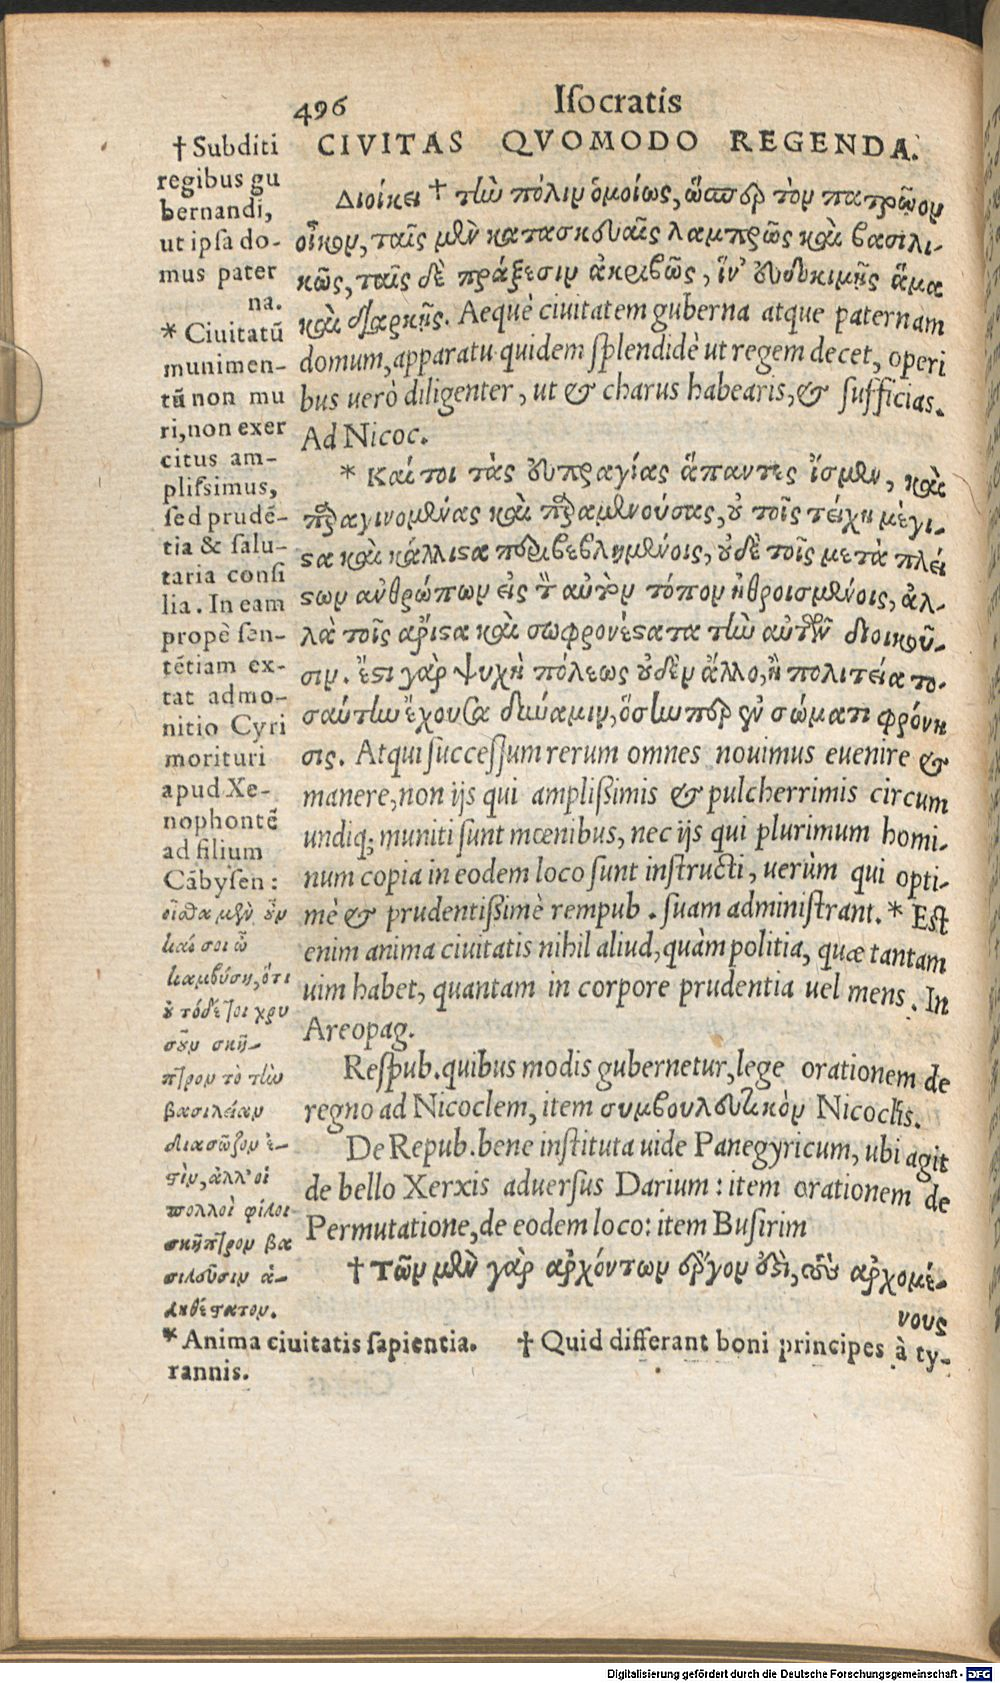 496 Iſocratis
CIVITAS QVOMODO REGENDA.
† Subditi
regibus gu
bernandi,
ut ipſa do-
mus pater
na.
* Ciuitatũ
munimen-
tũ non mu
ri, non exer
citus am-
pliſsimus,
ſed prudẽ-
tia & ſalu-
taria conſi
lia. In eam
propè ſen-
tẽtiam ex-
tat admo-
nitio Cyri
morituri
apud Xe-
nophontẽ
ad filium
Cãbyſen:
οἶσθα μὲν οὖν
καί σοι ὦ
καμβύση, ὅτι
οὐ τόδε τοι χρυ
σοῦν σκῆ-
πτρον τὸ τὴν
βασιλείαν
διασῶζον ἐ-
στὶν, ἀλλ' οἱ
πολλοὶ φίλοι
σκῆπτρον βα
σιλεῦσιν ἀ-
ληθέστατον.
Διοίκει † τὴν πόλιν ὁμοίως, ὥσπερ τὸν πατρῷον
οἶκον, ταῖς μὲν κατασκευαῖς λαμπρῶς καὶ βασιλι-
κῶς, ταῖς δὲ πράξεσιν ἀκριβῶς, ἵν' εὐδοκιμῇς ἅμα
καὶ διαρκῇς. Aequè ciuitatem guberna atque paternam
domum, apparatu quidem ſplendidè ut regem decet, operi
bus uerò diligenter, ut & charus habearis, & ſufficias.
Ad Nicoc.
* Καί τοι τὰς εὐπραγίας ἅπαντες ἴσμεν, καὶ
παραγινομένας καὶ παραμενούσας, οὐ τοῖς τείχη μέγι-
στα καὶ κάλλιστα περιβεβλημένοις, οὐδὲ τοῖς μετὰ πλεί
στων ἀνθρώπων εἰς τὸν αὐτὸν τόπον ἠθροισμένοις, ἀλ-
λὰ τοῖς ἄριστα καὶ σωφρονέστατα τὴν αὐτῶν διοικοῦ-
σιν. ἔστι γὰρ ψυχὴ πόλεως οὐδὲν ἄλλο, ἢ πολιτεία το-
σαύτην ἔχουσα δύναμιν, ὅσην περ ἐν σώματι φρόνη
σις. Atqui ſucceſſum rerum omnes nouimus euenire &
manere, non ijs qui ampliſsimis & pulcherrimis circum
undiq; muniti ſunt mœnibus, nec ijs qui plurimum homi-
num copia in eodem loco ſunt inſtructi, uerùm qui opti-
mè & prudentiſsimè rempub. ſuam adminiſtrant. * Eſt
enim anima ciuitatis nihil aliud, quàm politia, quæ tantam
uim habet, quantam in corpore prudentia uel mens. In
Areopag.
Reſpub. quibus modis gubernetur, lege orationem de
regno ad Nicoclem, item συμβουλευτικὸν Nicoclis.
De Repub. bene inſtituta uide Panegyricum, ubi agit
de bello Xerxis aduerſus Darium: item orationem de
Permutatione, de eodem loco: item Buſirim
† Τῶν μὲν γὰρ ἀρχόντων ἔργον ἐστὶ, τοὺς ἀρχομέ-
νους
* Anima ciuitatis ſapientia. † Quid differant boni principes à ty-
rannis.
Digitalisierung gefördert durch die Deutsche Forschungsgemeinschaft - DFG